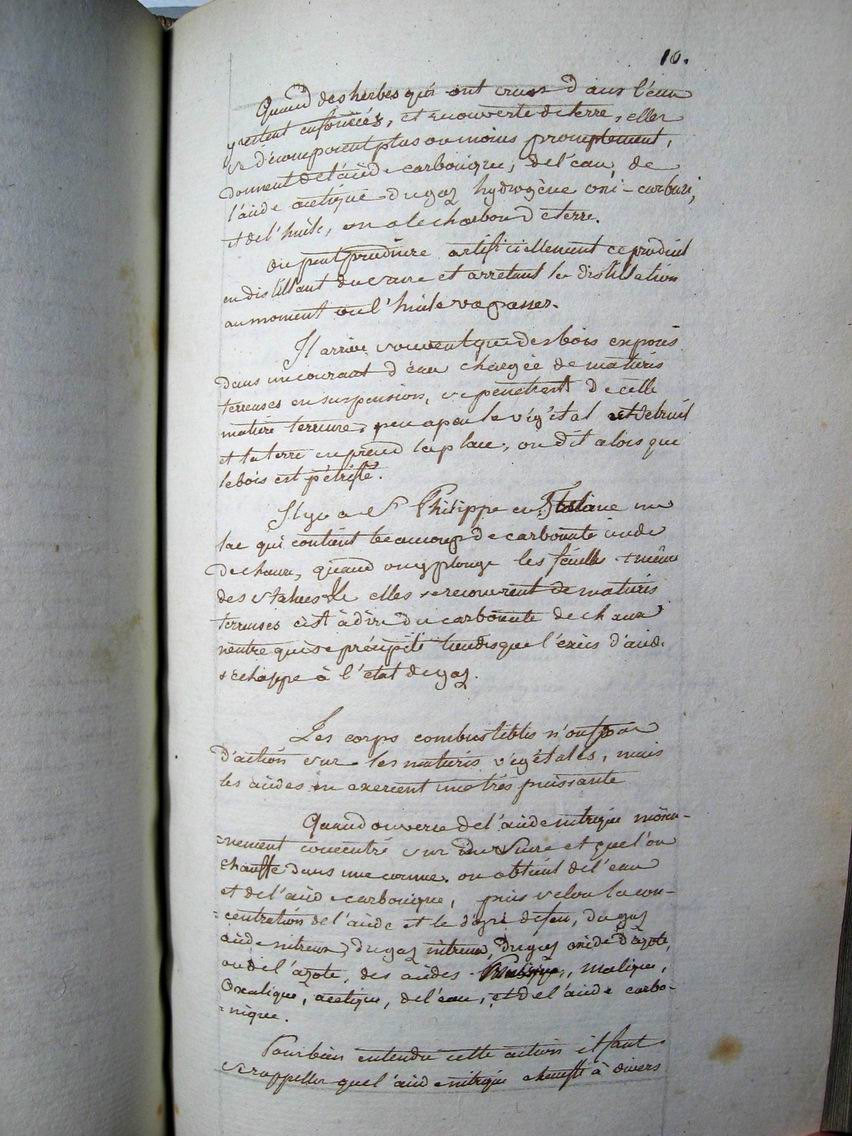 10.
Quand des herbes qui ont crues dans l'eau
y restent enfoncées, et recouverte de terre, elles
se décomposent plus ou moins promptement,
donnent de l'acide carbonique, de l'eau, de
l'acide acétique du gaz hydrogène oxi-carburé,
et de l'huile, on a le charbon de terre.
On peut produire artificiellement ce produit
en distillant du et arretant la distillation
au moment ou l'huile va passer.
Il arrive souvent que des bois exposés
dans un courant d'eau chargée de matieres
terreuses en suspension, se penetrent de cette
matiere terreuse, peu a peu le végétal est detruit
et la terre en prend la place, on dit alors que
le bois est pétrifié.
Il y a a St Philippe en Toscane un
lac qui contient beaucoup de carbonate acide
de chaux, quand on y plonge les feuilles même
des statues elles se recouvrent de matieres
terreuses c'est à dire du carbonate de chaux
neutre qui se précipite tandis que l'excès d'acide
s'echappe à l'etat de gaz.
Les corps combustibles n'ont pas
d'action sur les matieres végétales, mais
les acides en exercent une très puissante
Quand on verse de l'acide nitrique
=nement concentré sur du Sucre et que l'on
chauffe dans une cornue. on obtient de l'eau
et de l'acide carbonique, puis selon la con-
=centration de l'acide et le degré de feu, du gaz
acide nitreux, du gaz nitreux, du gaz oxide d'azote,
ou de l'azote, des acides malique,
Oxalique, acétique, de l'eau, et de l'acide carbo-
=nique.
Pour bien entendre cette action il faut
se rappeller que l'acide nitrique chauffé à divers